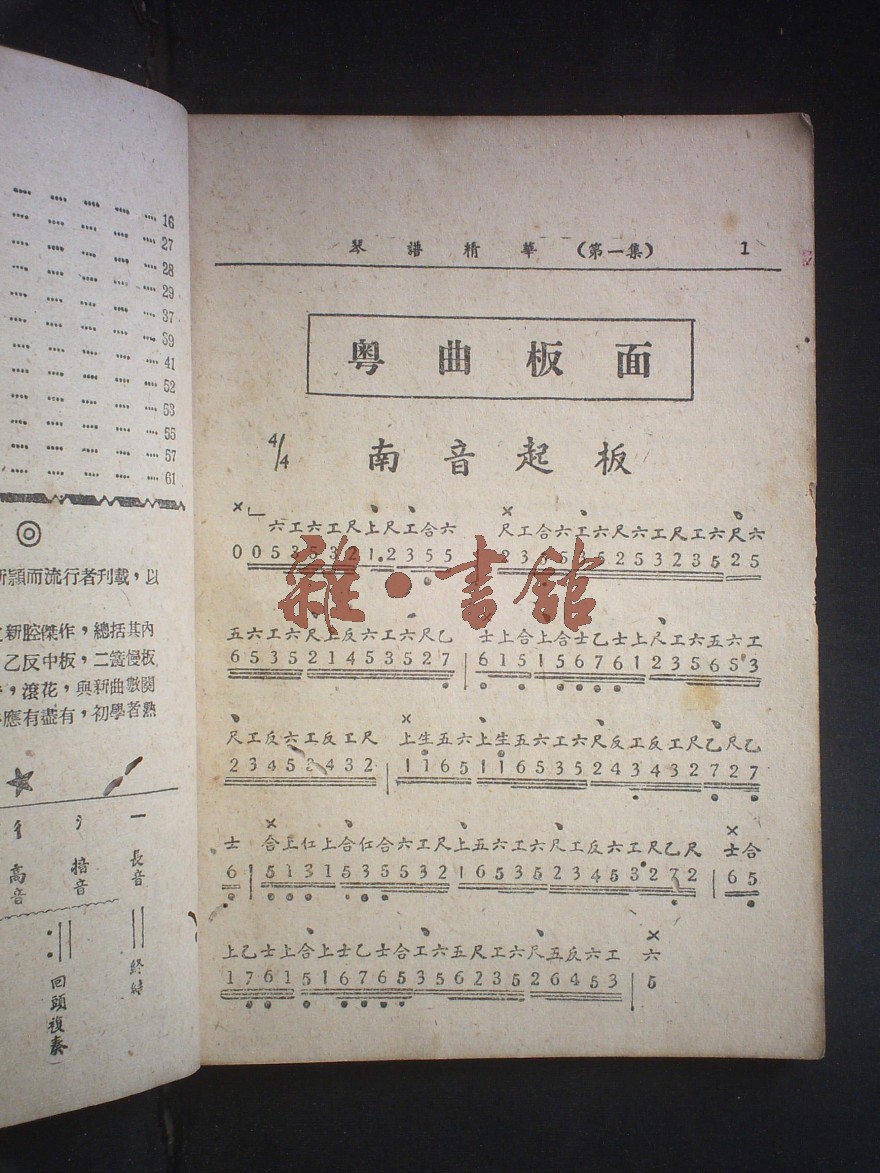 16
27
28
29
37
39
41
52
53
55
57
61
◎
新穎而流行者刊載，以
新腔傑作，總括其內
乙反中板，二簧慢板
，滾花，與新曲數闋
應有盡有，初學者熟
一 長音
捂音
高音
終結
回頭複奏
琴譜精華（第一集） 1
粵曲板面
4/4 南音起板
六工六工尺上尺工合六 尺工合六工六尺六工尺工六尺六
0 0 5 3 5 3 2 1 2 3 5 5 2 3 5 5 3 5 2 5 3 2 3 5 2 5
五六工六尺上反六工六尺乙 士上合上合士乙士上尺工六五六工
6 5 3 5 2 1 4 5 3 5 2 7 6 1 5 1 5 6 7 6 1 2 3 5 6 5 3
尺工反六工反工尺 上生五六上生五六工六尺反工反工尺乙尺乙
2 3 4 5 3 4 3 2 1 1 6 5 1 1 6 5 3 5 2 4 3 4 3 2 7 2 7
士 合上仜上合仜合六工尺上五六工六尺工反六工尺乙尺 士合
6 5 1 3 1 5 3 5 5 3 2 1 6 5 3 5 2 3 4 5 3 2 7 2 6 5
上乙士上合上士乙士合工六五尺工六尺五反六工 六
1 7 6 1 5 1 6 7 6 5 3 5 6 2 3 5 2 6 4 5 3 5
雜·書館